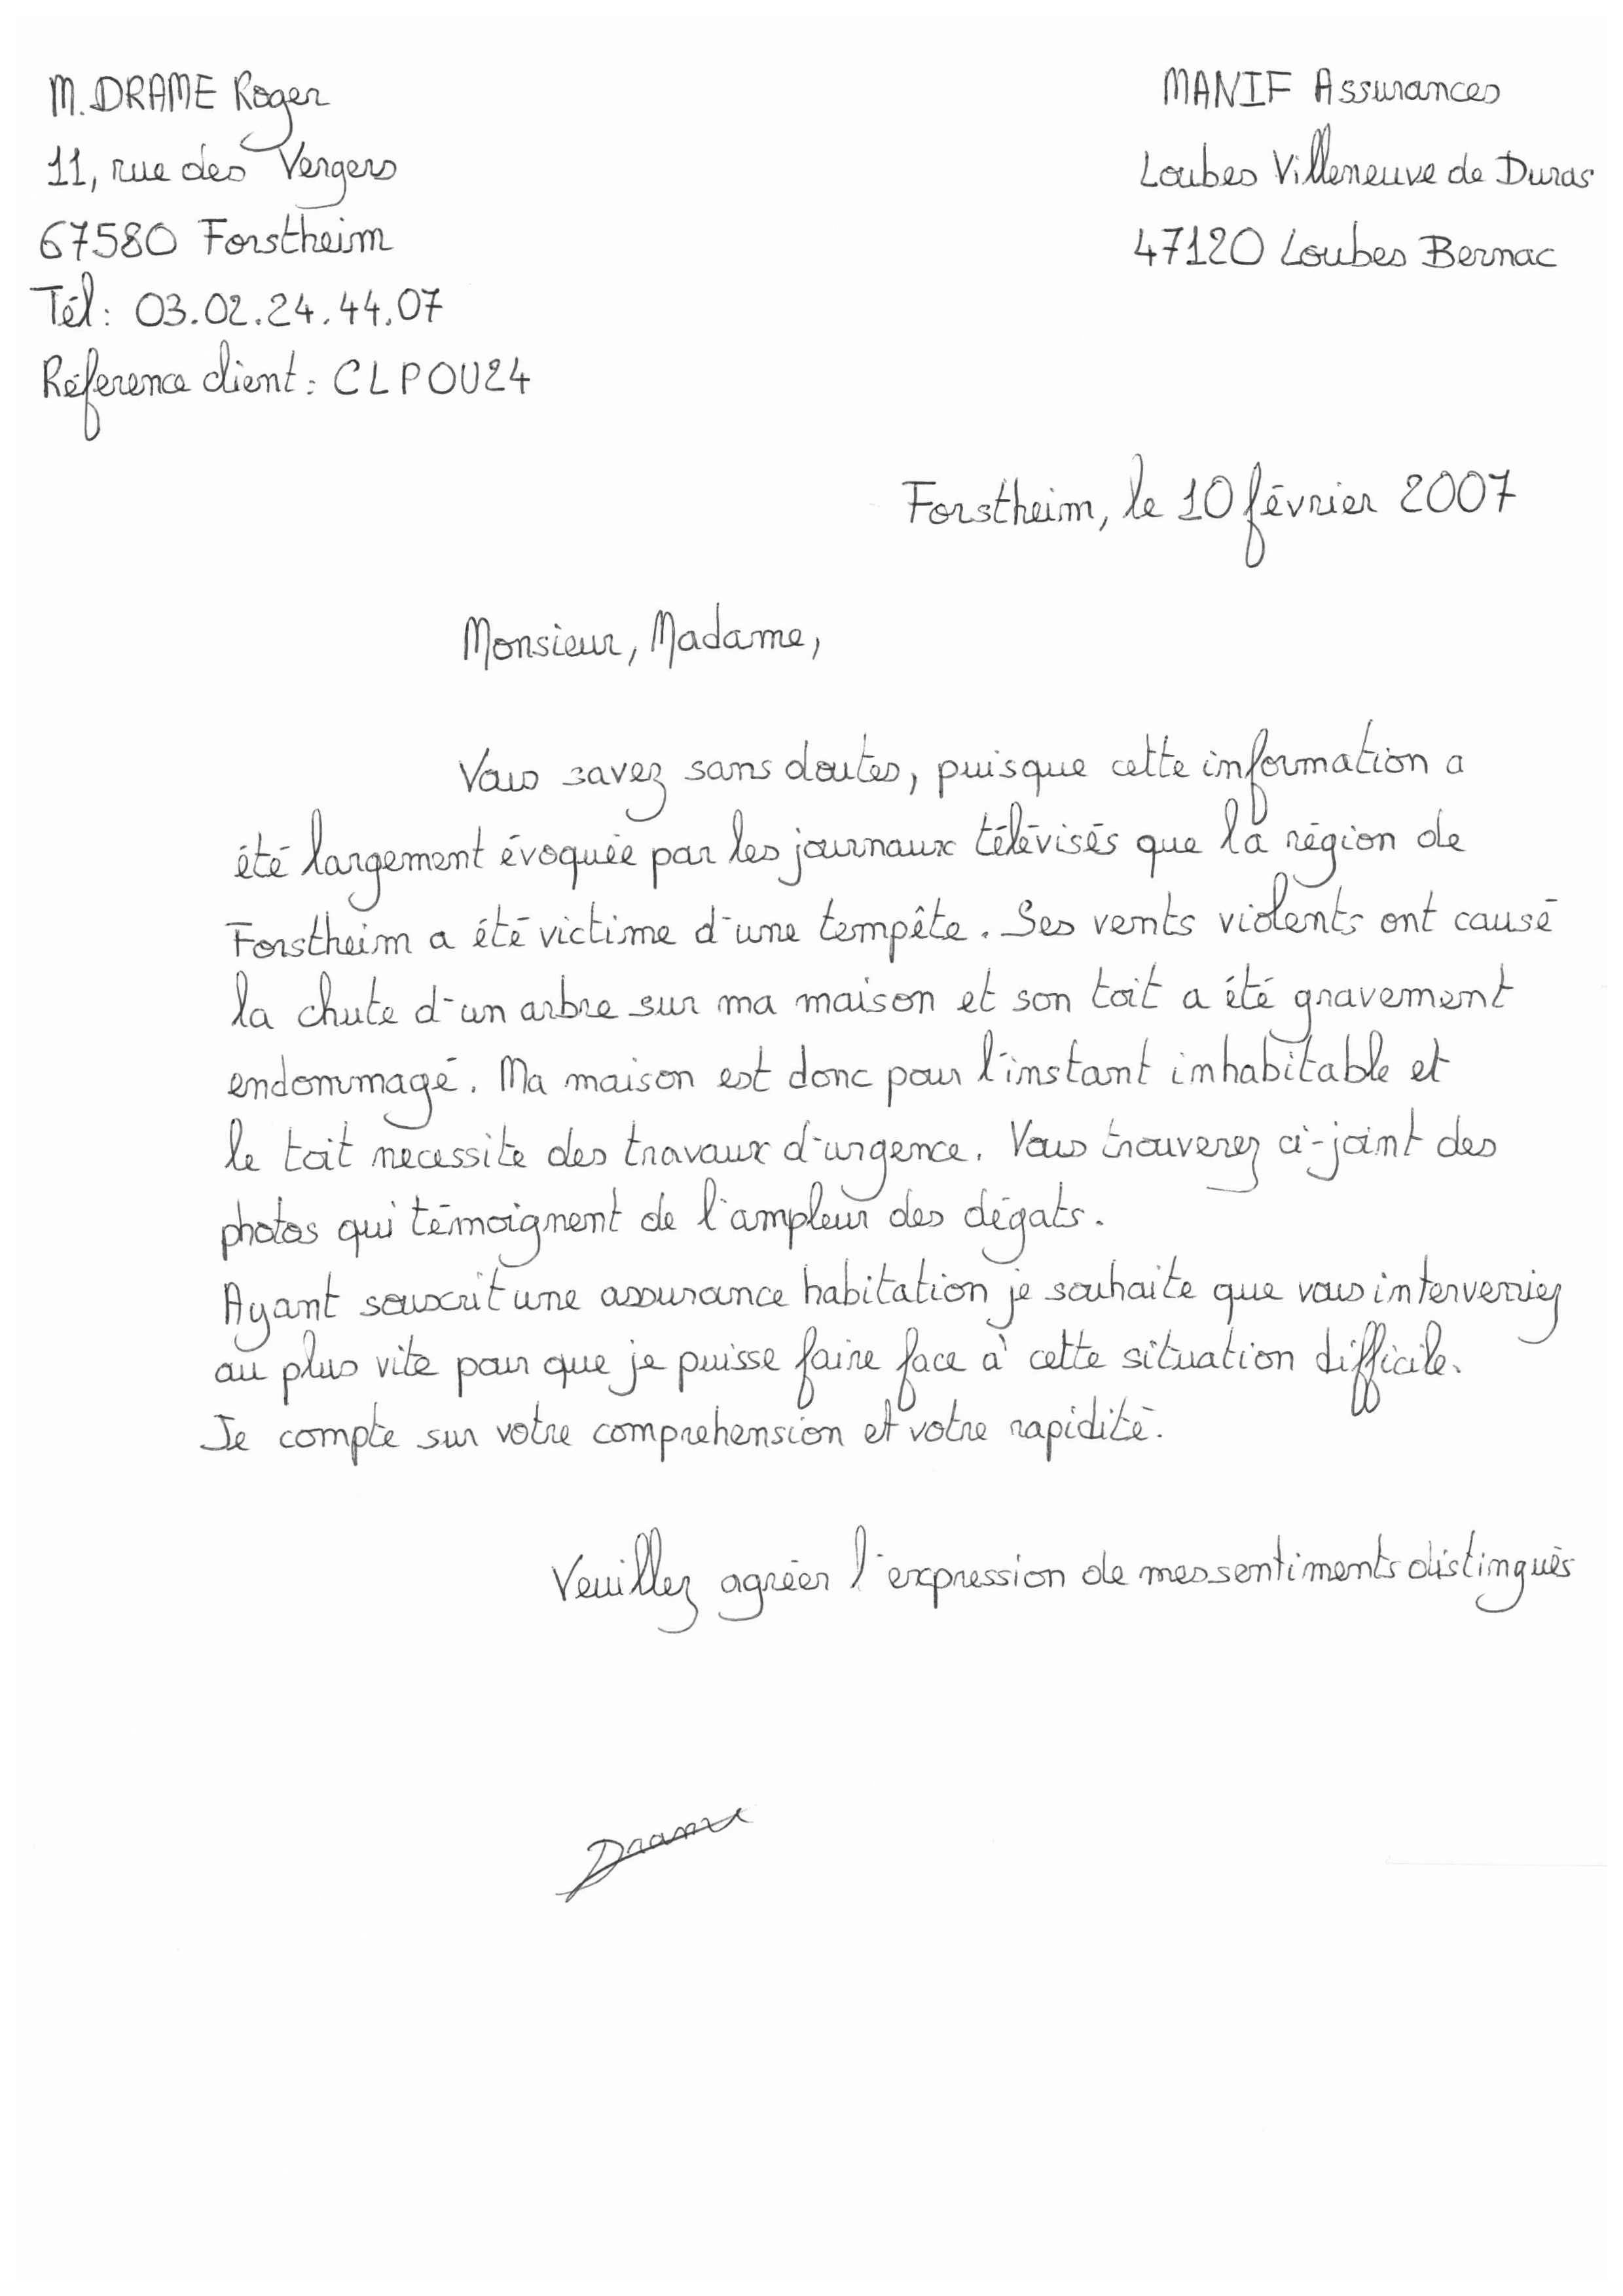 M. DRAME Roger
11, rue des Vergers
67580 Forstheim
Tél : 03.02.24.44.07
Réference client : CLPOU24
MANIF Assurances
Loubes Villeneuve de Duras
47120 Loubes Bernac
Forstheim, le 10 février 2007
Monsieur, Madame,
Vous savez sans doutes, puisque cette information a
été largement évoquée par les journaux télévisés que la région de
Forstheim a été victime d'une tempête. Ses vents violents ont causé
la chute d'un arbre sur ma maison et son toit a été gravement
endommagé. Ma maison est donc pour l'instant inhabitable et
le toit necessite des travaux d'urgence. Vous trouverez ci-joint des
photos qui témoignent de l'ampleur des dégats.
Ayant souscrit une assurance habitation je souhaite que vous interveniez
au plus vite pour que je puisse faire face à cette situation difficile.
Je compte sur votre comprehension et votre rapidité.
Veuillez agréer l'expression de mes sentiments distingués
Drame